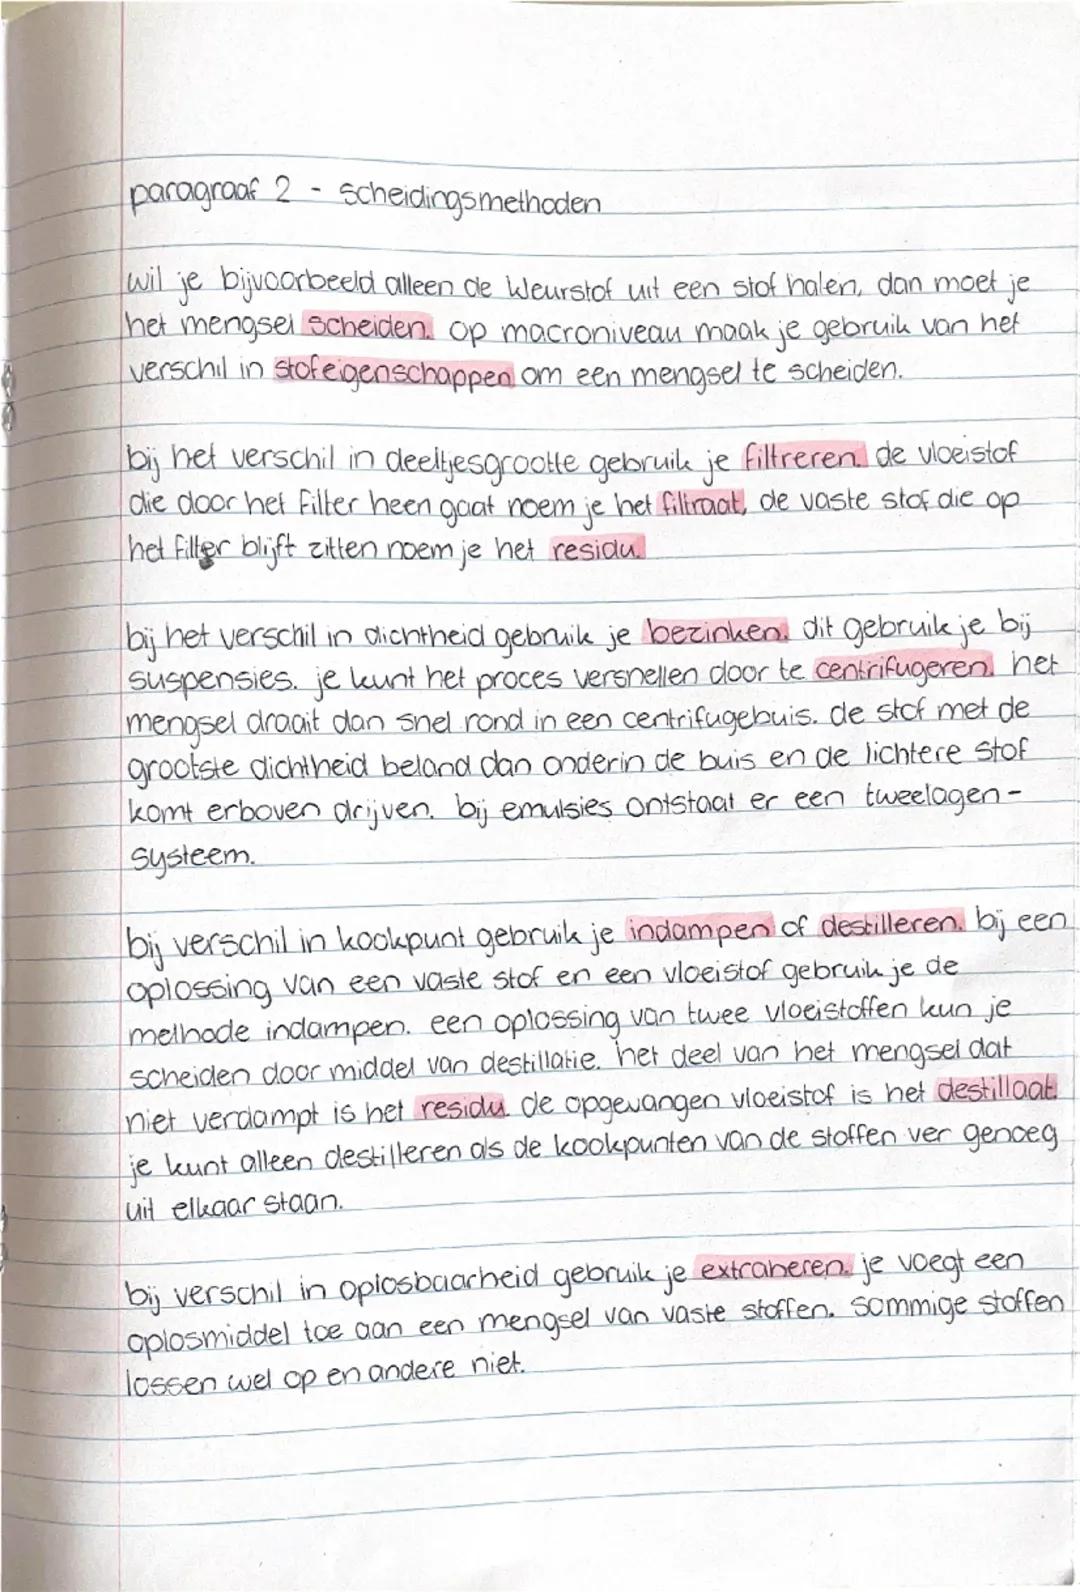 paragraaf 2 - scheidingsmethoden
wil je bijvoorbeeld alleen de kleurstof uit een stof halen, dan moet je
het mengsel scheiden. op macroniveau maak je gebruik van het
verschil in stofeigenschappen om een mengsel te scheiden.
bij het verschil in deeltjesgrootte gebruik je filtreren. de vloeistof
die door het filter heen gaat noem je het filtraat, de vaste stof die op
het filter blijft zitten noem je het residu.
bij het verschil in dichtheid gebruik je bezinken. dit gebruik je bij
suspensies. je kunt het proces versnellen door te centrifugeren. het
mengsel draait dan snel rond in een centrifugebuis. de stof met de
grootste dichtheid beland dan onderin de buis en de lichtere stof
komt erboven drijven. bij emulsies ontstaat er een tweelagen-
systeem.
bij verschil in kookpunt gebruik je indampen of destilleren. bij een
oplossing van een vaste stof en een vloeistof gebruik je de
methode indampen. een oplossing van twee vloeistoffen kun je
scheiden door middel van destillatie. het deel van het mengsel dat
niet verdampt is het residu. de opgevangen vloeistof is het destillaat.
je kunt alleen destilleren als de kookpunten van de stoffen ver genoeg
uit elkaar staan.
bij verschil in oplosbaarheid gebruik je extraheren. je voegt een
oplosmiddel toe aan een mengsel van vaste stoffen. sommige stoffen
lossen wel op en andere niet.